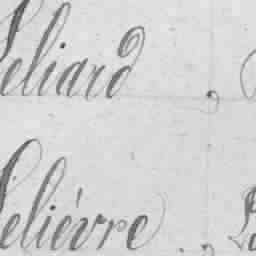 Leliard ,
Leliévre . ,